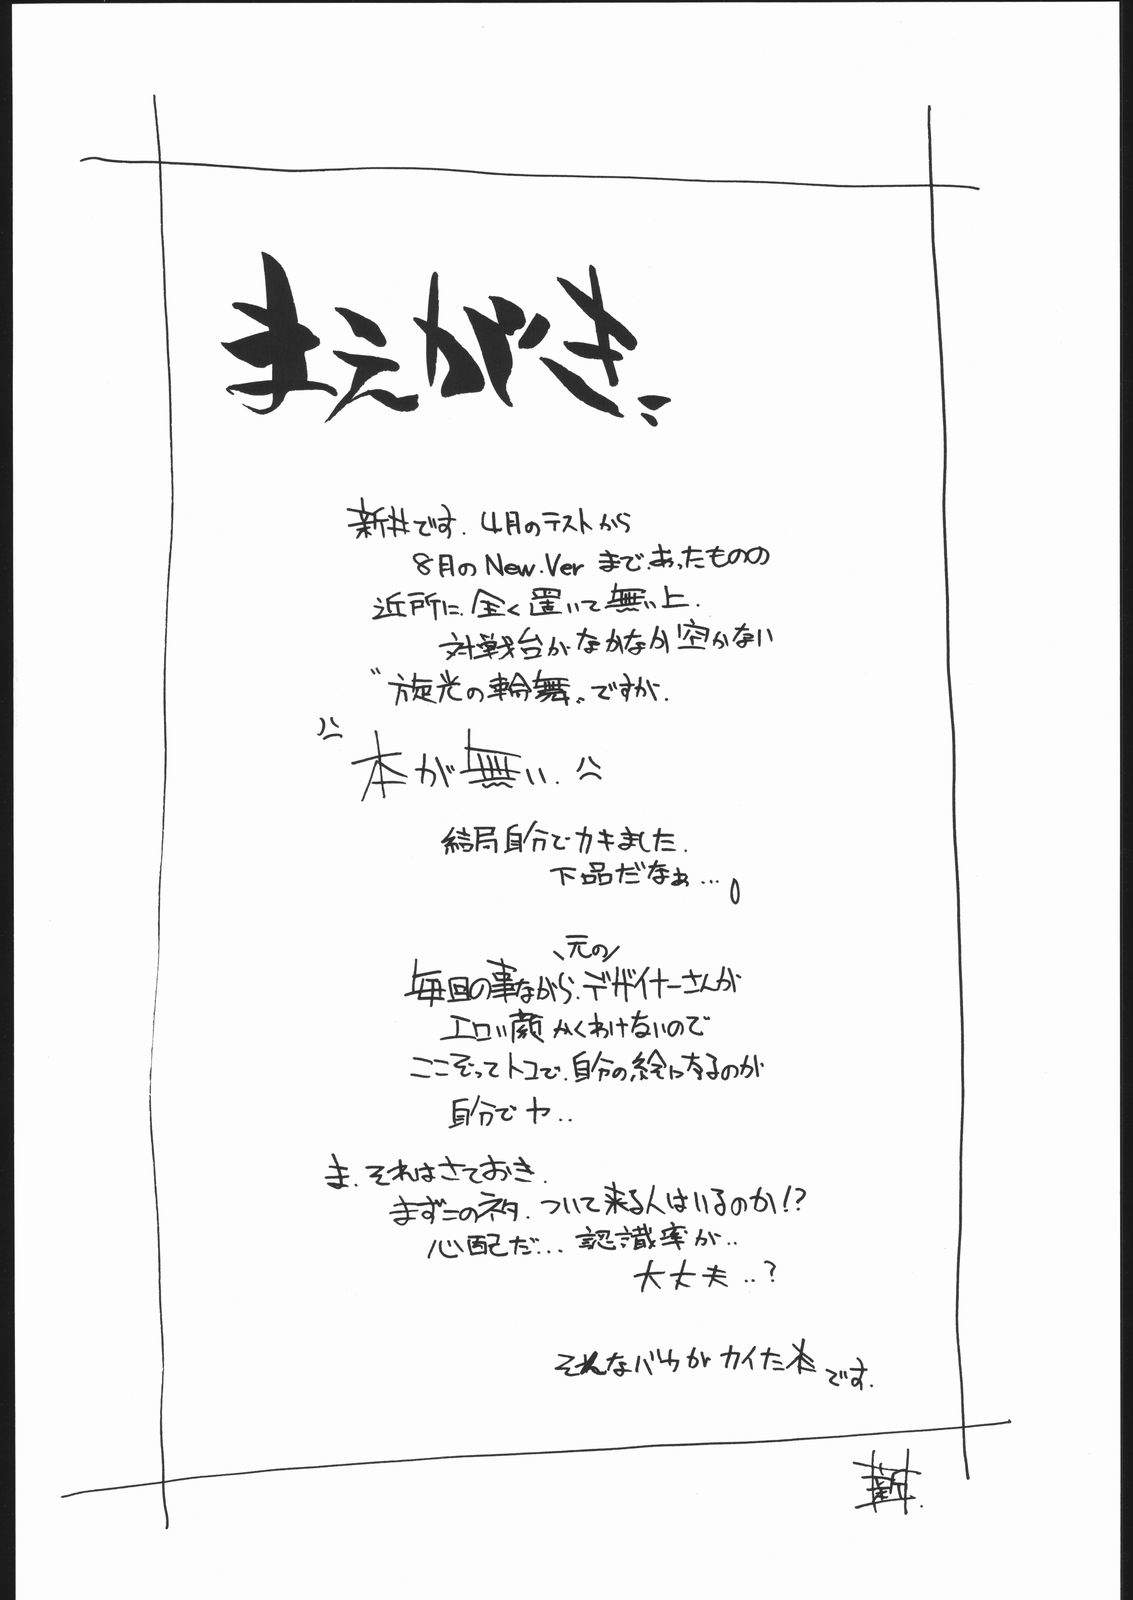 まえがき
新井です. 4月のテストから
8月の New.Ver まで.あったものの
近所に.全く置いて無い上.
対戦台がなかなか空かない
"旋光の輪舞"ですが.
本が無い.
結局自分でカキました.
下品だなぁ…
元の
毎回の事ながら.デザイナーさんが
エロい顔かくわけないので
ここぞってトコで.自分の絵になるのが
自分でヤ..
ま.それはさておき.
まずこのネタ.ついて来る人はいるのか!?
心配だ... 認識率が..
大丈夫..?
そんなバカがカイた本です.
新